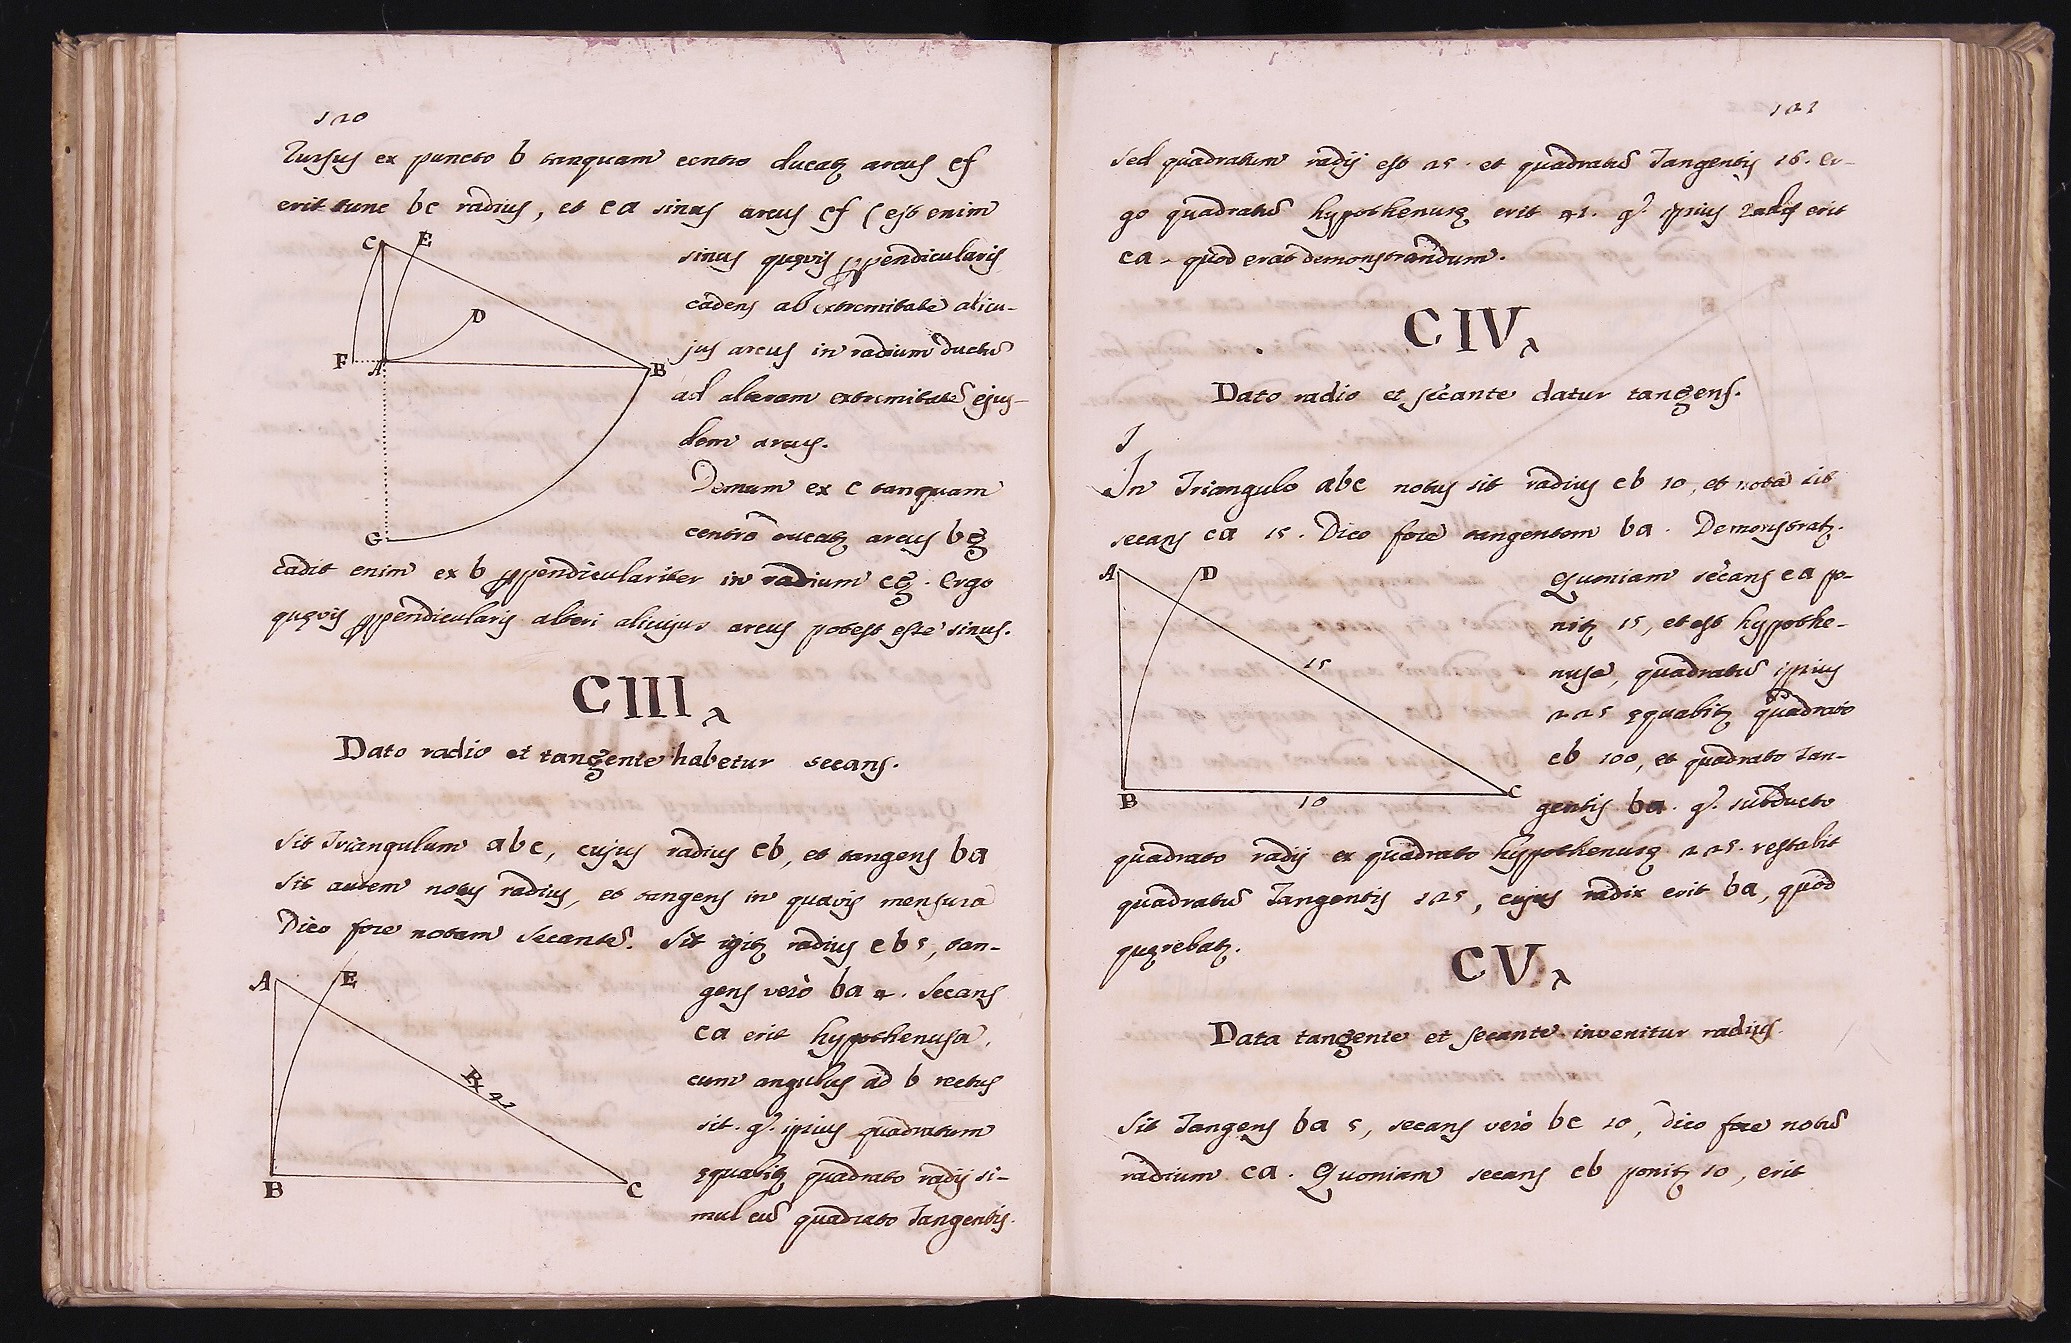 120
Rursus ex puncto b tanquam centro ducatʒ arcus cf
erit tunc bc radius, et ca sinus arcus cf (est enim
C E
D
F A B
G
sinus quęvis ppendicularis
cadens ab extremitate alicu-
jus arcus in radium ductū
ad alteram extremitatē ejus-
dem arcus.
Demum ex c tanquam
centro ducatʒ arcus bg
cadit enim ex b ppendiculariter in radium cg. Ergo
quęvis ppendicularis alteri alicujus arcus potest esse sinus.
CIII
Dato radio et tangente habetur secans.
Sit Triangulum abc, cujus radius cb, et tangens ba
sit autem notus radius, et tangens in quavis mensura
Dico fore notam secantē. Sit igitʒ radius cb 5, tan-
A E
℞ 41
B C
gens verò ba 4. Secans
ca erit hypothenusa,
cum angulus ad b rectus
sit. gᵒ. ipsius quadratum
ęquabitʒ quadrato radij si-
mul cū quadrato Tangentis.
121
sed quadratum radij est 25. et quadratū Tangentis 16. Er-
go quadratū hypothenusę erit 41. gᵒ. ipsius Radix erit
ca. quod erat demonstrandum.
CIV
Dato radio et secante datur tangens.
In Triangulo abc notus sit radius cb 10, et nota sit
secans ca 15. Dico fore tangentem ba. Demonstratʒ.
A D
15
B 10 C
Quoniam secans ca po-
nitʒ 15, et est hypothe-
nusa, quadratū ipsius
225 ęquabitʒ quadrato
cb 100, et quadrato Tan-
gentis ba. gᵒ. subducto
quadrato radij ex quadrato hypothenusę 225. restabit
quadratū Tangentis 125, cujus radix erit ba, quod
quęrebatʒ.
CV
Data tangente et secante invenitur radius.
Sit Tangens ba 5, secans verò bc 10, dico fore notū
radium ca. Quoniam secans cb ponitʒ 10, erit